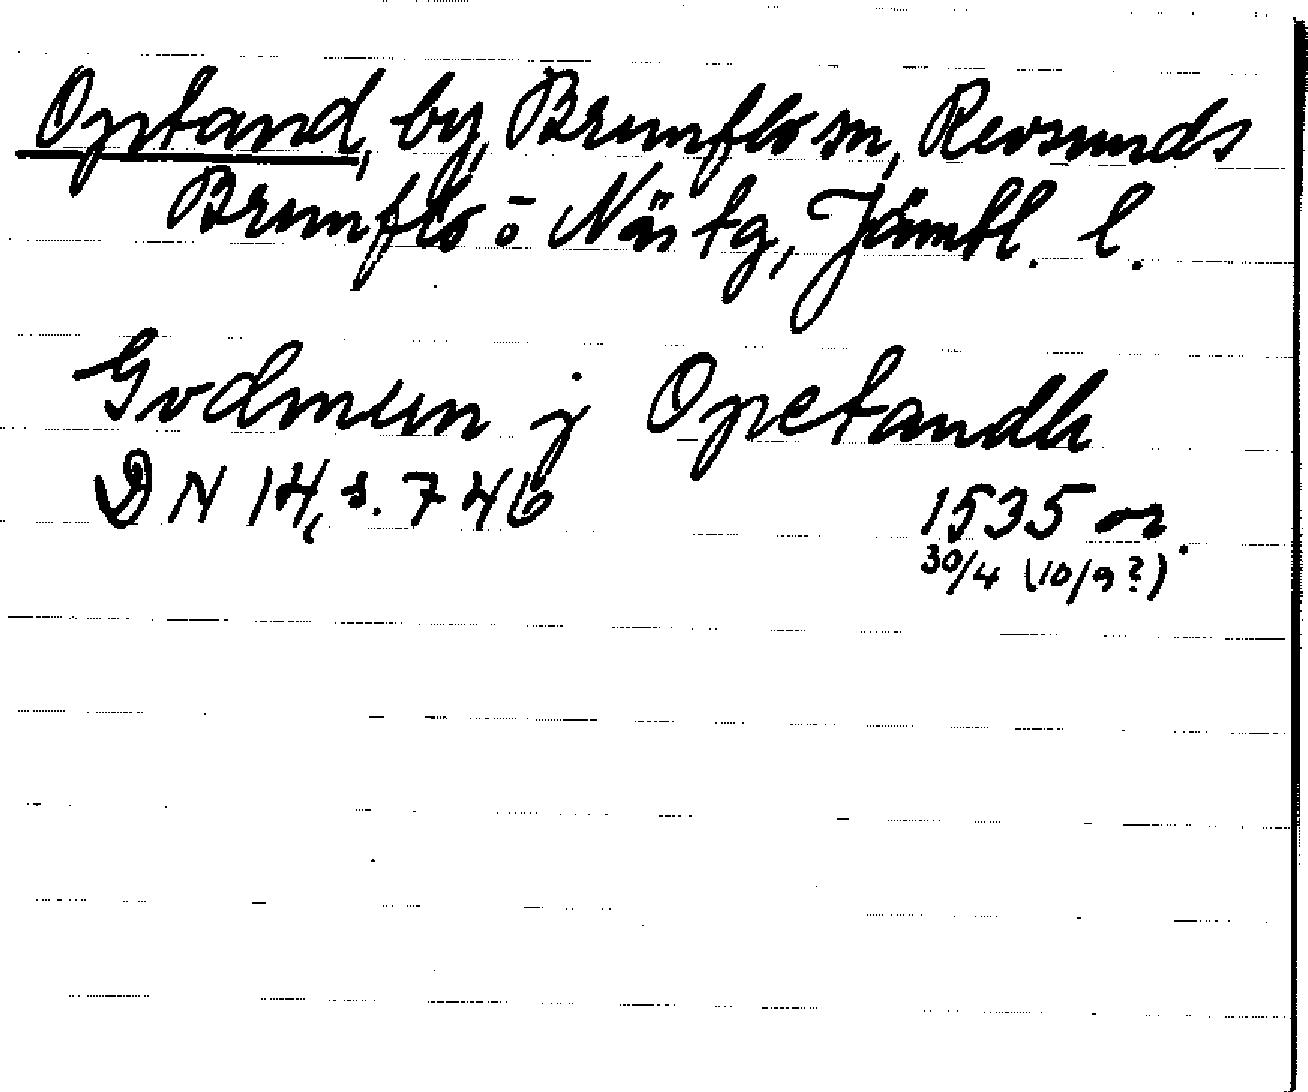 Optand, by, Brunflo sn, Revsunds
Brunflo ō Näs tg, Jämtl. l.
Gudmun j Opetandh
DN 14, s. 746
1535 or.
30/4 (10/9?)